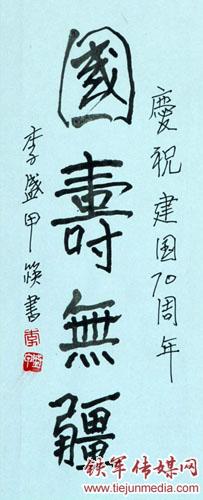 慶祝建国70周年
國壽無疆
李盛甲筷書
铁军传媒网
www.tiejunmedia.com